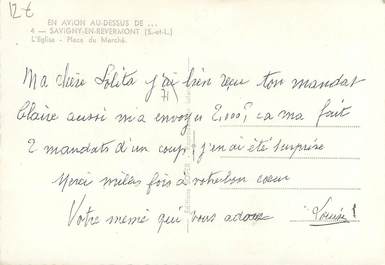 12 €
EN AVION AU-DESSUS DE ...
4 — SAVIGNY-EN-REVERMONT (S.-et-L.)
L'Eglise - Place du Marché.
Ma chère Lolita j'ai bien reçu ton mandat
71
Claire aussi m'a envoyé 2.000F, ca ma fait
2 mandats d'un coup. j'en ai été surprise
Merci milles fois à votre bon cœur
Votre mémé qui vous adore Louise